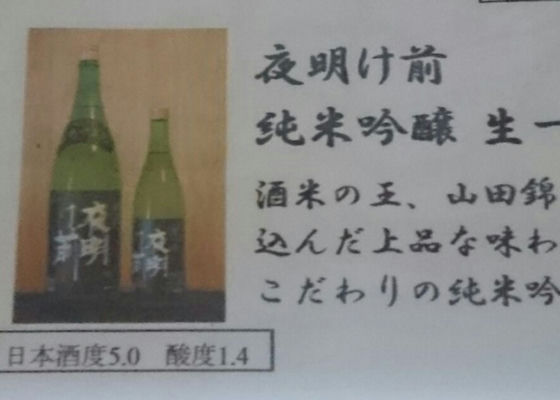 夜明け前
純米吟醸 生一
酒米の王、山田錦
込んだ上品な味わ
こだわりの純米吟
夜明け前
夜明
日本酒度5.0 酸度1.4